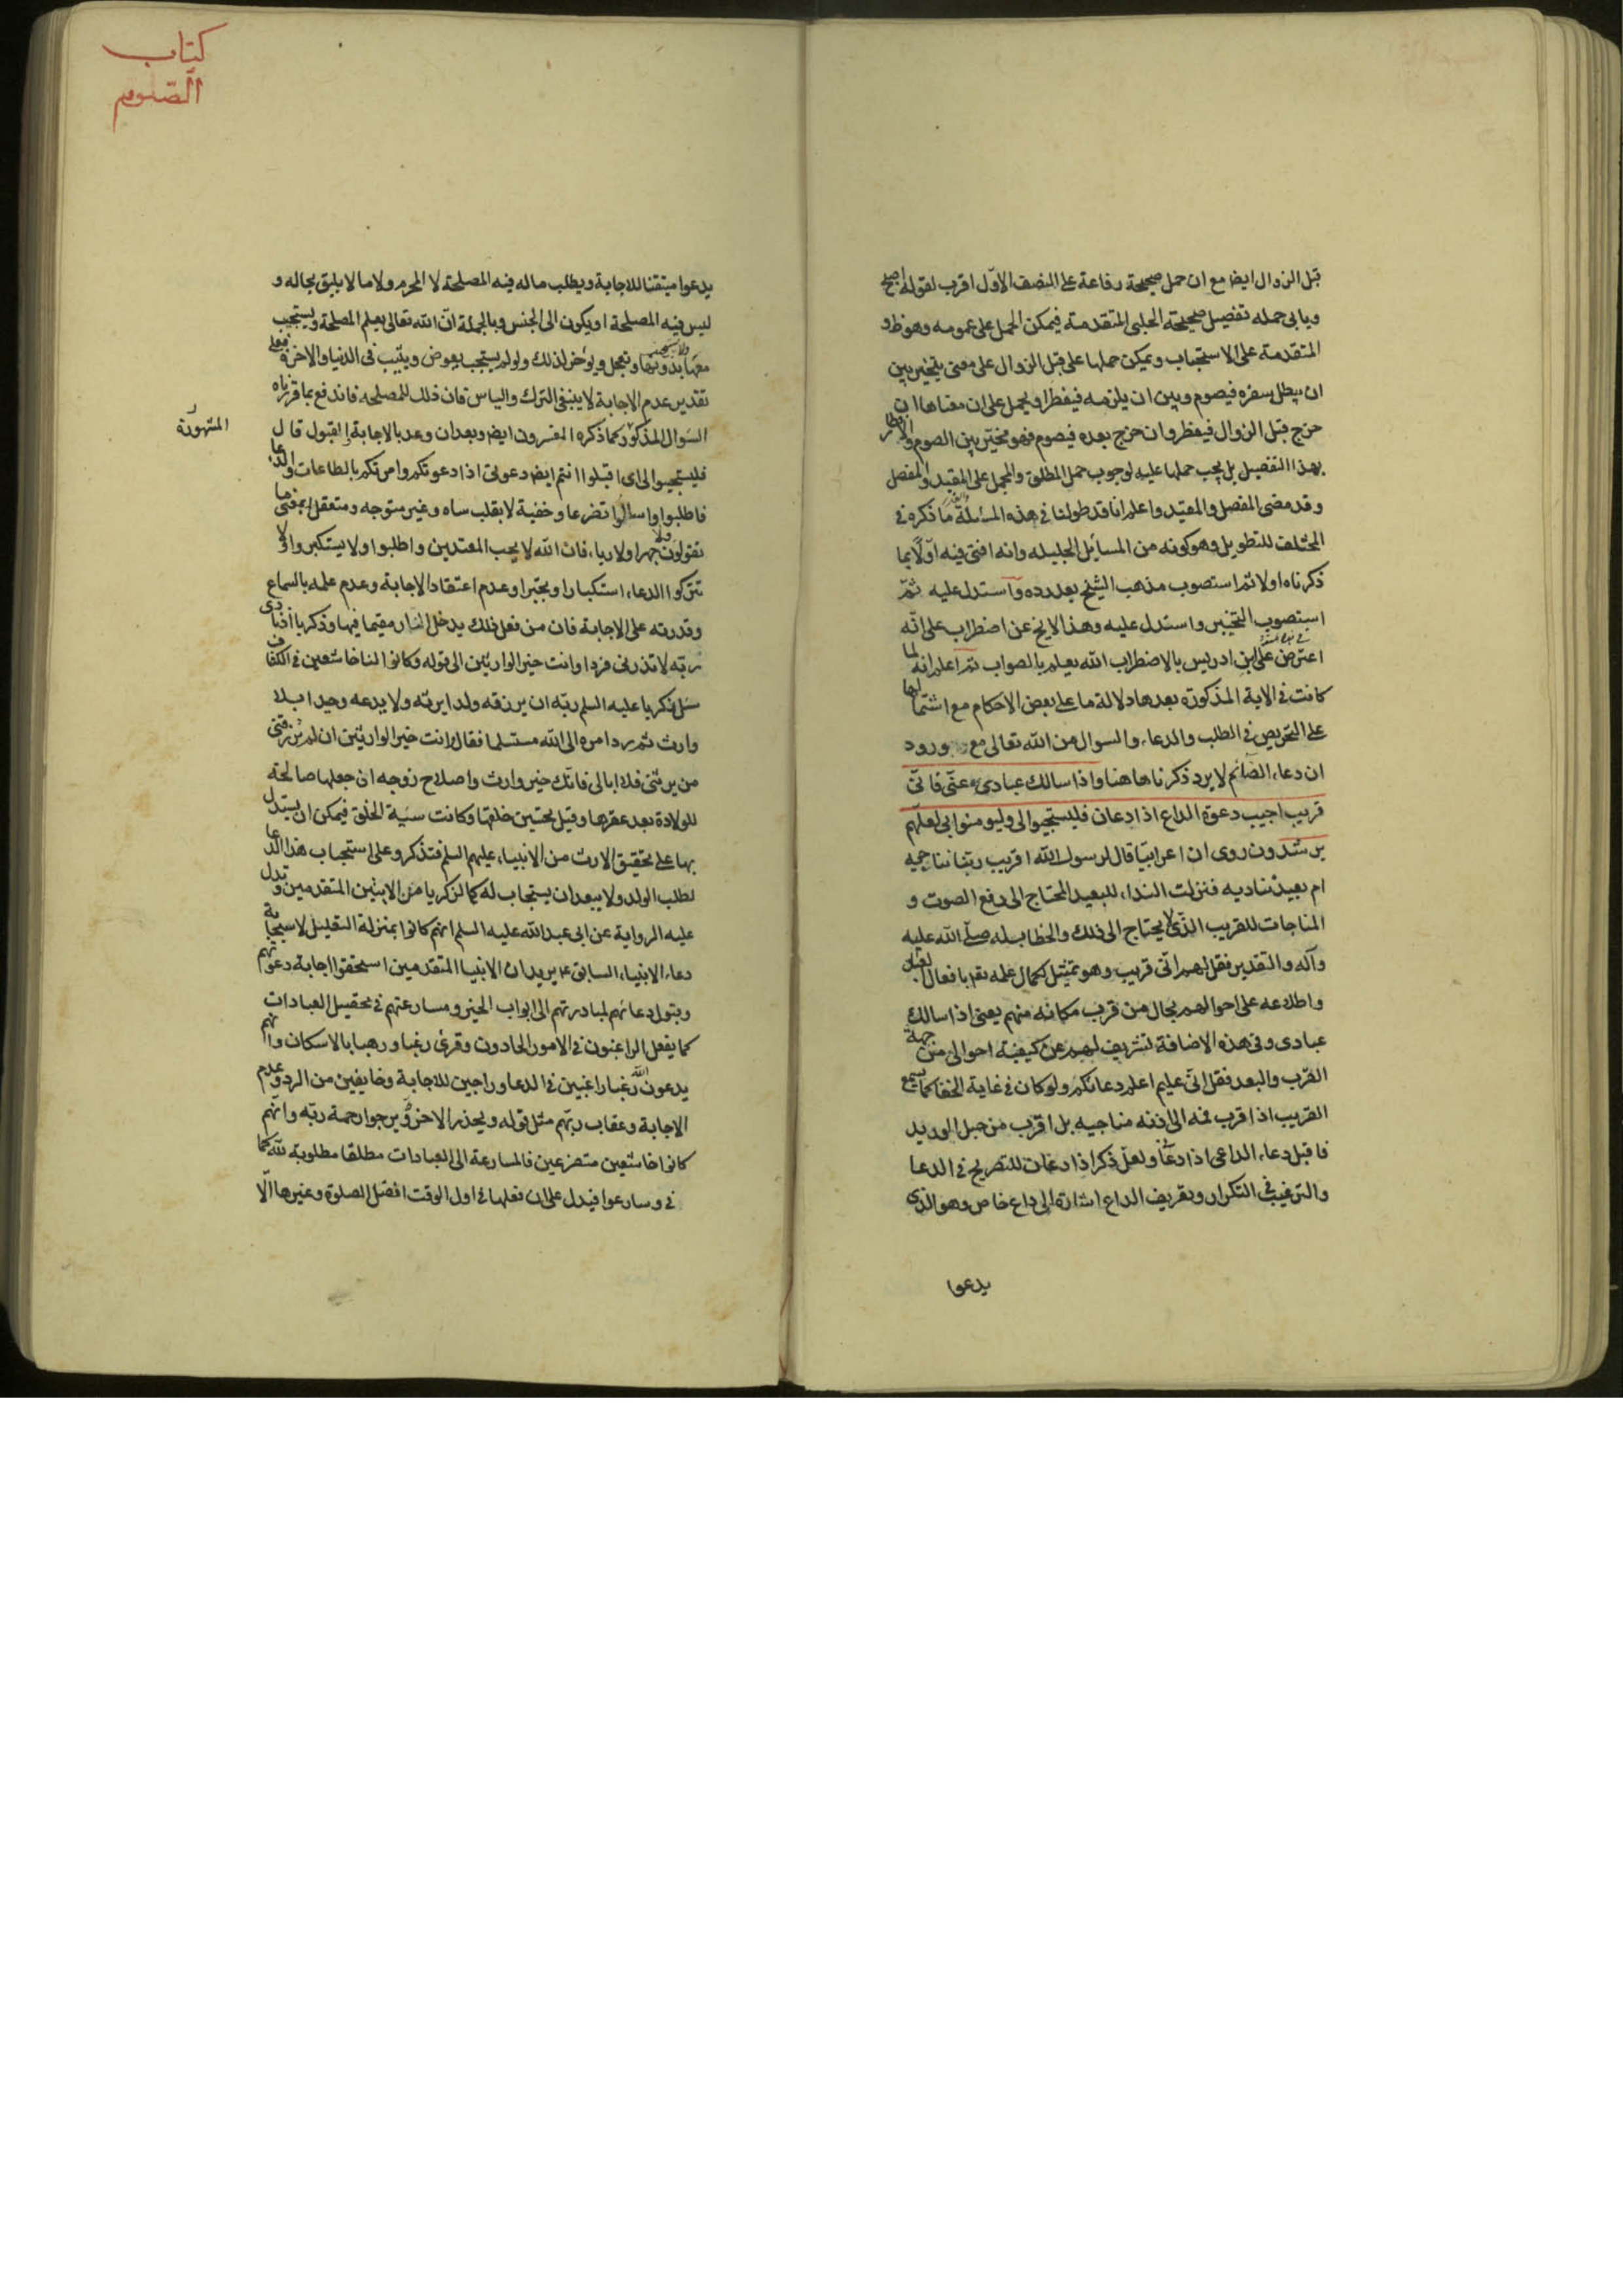 قبل الزوال ايضا مع ان حمل صحيحة رفاعة على النصف الاوّل اقرب لقوله اصبح
ويابى حمله تفصيل صحيحة الحلبى المتقدمة فيمكن الحمل على عمومه وهو ظ و
المتقدمة على الاستحباب ويمكن حملها على قبل الزوال على معنى يتخير بين
ان يبطل سفره فيصوم وبين ان يلزمه فيفطر او يحمل على ان معناها ان
خرج قبل الزوال فيفطر وان خرج بعده فيصوم فهو مخيّر بين الصوم والافطار
بهذا التفصيل بل يجب حملها عليه لوجوب حمل المطلق والمجمل على المقيد والمفصل
وقد مضى المفصل والمقيّد واعلم انا قد طولنا فى هذه المسئلة ما ذكره فى
المختلف للتطويل وهو كونه من المسائل الجليله وانه افتى فيه اوّلا بما
ذكرناه اولا ثم استصوب مذهب الشيخ بعد رده واستدل عليه ثمّ
استصوب التخيير واستدل عليه وهذا لايخ عن اضطراب على انّه
اعترض على ابن ادريس بالاضطراب الله يعلم بالصواب ثم اعلم انه لما
كانت فى الاية المذكورة بعدها دلالة ما على بعض الاحكام مع اشتمالها
على التحريص فى الطلب والدعاء والسوال من الله تعالى مع ورود
ان دعاء الصائم لا يرد ذكرناها هنا واذا سالك عبادى عنّى فانّى
قريب اجيب دعوة الداع اذا دعان فليستجيبوا لى وليومنوا بى لعلّهم
يرشدون روى ان اعرابيّا قال لرسول الله اقريب ربّنا نناجيه
ام بعيد نناديه فنزلت النداء للبعيد المحتاج الى رفع الصوت و
المناجات للقريب الّذى لا يحتاج الى ذلك والخطاب له صلّى الله عليه
وآله والتقدير فقل لهم انّى قريب وهو تمثيل لكمال علمه تع بافعال العباد
واطلاعه على احوالهم بحال من قرب مكانه منهم يعنى اذا سالك
عبادى وفى هذه الاضافة تشريف لهم عن كيفيّة احوالى من جهة
القرب والبعد فقل انّى عليم اعلم دعائكم ولو كان فى غاية الخفا كما يسمع
القريب اذا قرب فمه الى اذنه مناجيه بل اقرب من حبل الوريد
فاقبل دعاء الداعى اذا دعانى ولعلّ ذكر اذا دعان للتصريح فى الدعا
والترغيب فى التكرار وتعريف الداع اشارة الى داع خاص وهو الذى
يدعوا
كتاب
الصّوم
يدعوا متيقنا للاجابة ويطلب ماله فيه المصلحة لا المحرم ولا ما لا يليق بحاله و
ليس فيه المصلحة او يكون الى الجنس وبالجملة انّ الله تعالى يعلم المصلحة ويستجيب
معها بدونها ويعجل ويؤخر لذلك ولو لم يستجب يعوض ويثيب فى الدنيا والاخرة فعلى
تقدير عدم الاجابة لا ينبغى الترك والياس فان ذلك للمصلحه فاندفع بما قررناه
السّوال المذكور كما ذكره المفسرون ايض وبعد ان وعد بالاجابة القبول قال
المشهور انّه
فليستجيبوا لى اى اقبلوا انتم ايض دعوتى اذا دعوتكم وامرتكم بالطاعات والدعا
فاطلبوا واسالوا تضرعا وخفية لا بقلب ساه وغير متوجه ومتعقل بمعنى ما
تقولون ولا جهرا ولا رياء فان الله لا يحب المعتدين واطلبوا ولا يستكبروا ولا
تتركوا الدعاء استكبارا وتجبرا وعدم اعتقاد الاجابة وعدم علمه بالسماع
وقدرته على الاجابة فان من فعل ذلك يدخل النار مقيما فيها وذكريا اذ نادى
ربّه لا تذرنى فردا وانت خير الوارثين الى قوله وكانوا لنا خاشعين فى الكشاف
سئل زكريا عليه السلم ربّه ان يرزقه ولدا يرثه ولا يدعه وحيدا بلا
وارث ثم رد امره الى الله مستسلما فقال وانت خير الوارثين ان لم ترزقنى
من يرثنى فلا ابالى فانّك خير وارث واصلاح زوجه ان جعلها صالحة
للولادة بعد عقرها وقيل تحسين خلقها وكانت سيّة الخلق فيمكن ان يستدل
بها على تحقيق الارث من الانبياء عليهم السلم فتذكر وعلى استحباب هذا الدعا
لطلب الولد ولا يبعد ان يستجاب له كما لزكريا من الابنين المتقدمين وتدل
عليه الرواية عن ابى عبد الله عليه السلم انهم كانوا بمنزلة التعليل لاستجابة
دعاء الانبياء السابق ء يريد ان الانبيا المتقدمين استحقوا اجابة دعوتهم
وبتول دعائهم لمبادرتهم الى ابواب الخير ومسارعتهم فى تحصيل العبادات
كما يفعل الراغبون فى الامور الجادون وقرئ رغبا ورهبا بالاسكان وانهم
يدعون الله رغبا راغبين فى الدعا وراجين للاجابة وخايفين من الرد وعدم
الاجابة وعقاب ربّهم مثل قوله ويحذر الاخرة ويرجوا رحمة ربّه وانّهم
كانوا خاشعين متضرعين فالمسارعة الى العبادات مطلقا مطلوبة لله كما
فى وسارعوا فيدل على ان فعلها فى اول الوقت افضل الصلوة وغيرها الّا